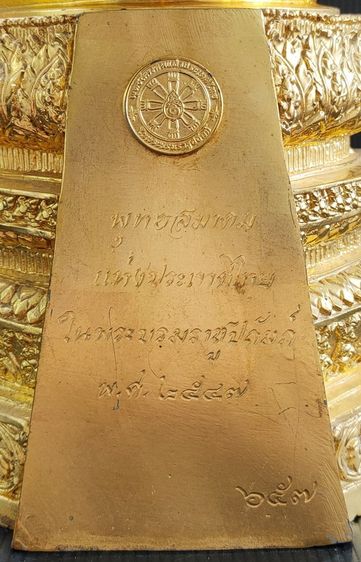 พุทธสมาคม
แห่งประเทศไทย
ในพระบรมราชูปถัมภ์
พ.ศ. ๒๕๔๗
๖๕๗